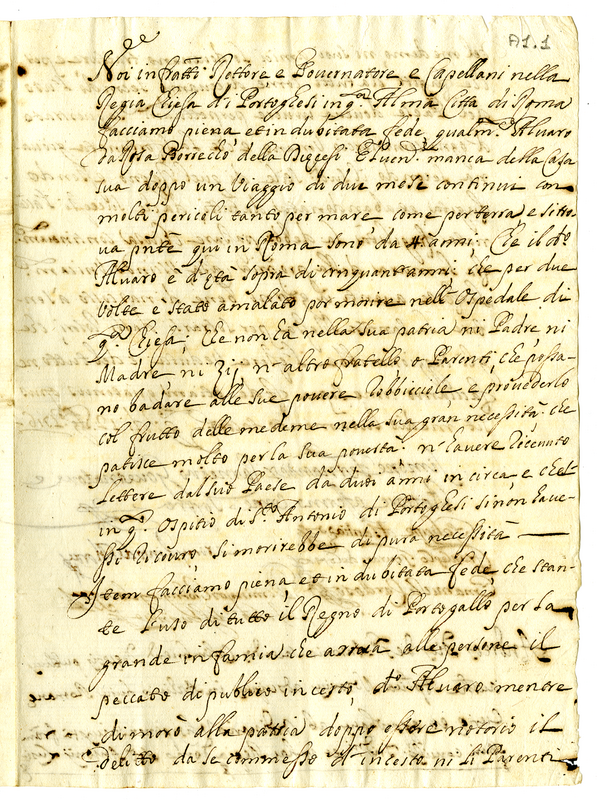 A1.1
Noi infratti Rettore e Governatore, e Capellani nella
Regia Chiesa di Portoghesi in qa Alma Città di Roma
facciamo piena et indubitata fede, qualmte Alvaro
da Rosa della Diocesi manca della Casa
sua doppo un Viaggio di due mesi continui con
molti pericoli tanto per mare come per terra, e si tro-
va pnte qui in Roma sono da 4 anni, Che il do
Alvaro è d'età sopra di cinquant'anni, che per due
volte è stato amalato per morire nell'Ospedale di
qa Chiesa: Che non ha nella sua patria ni Padre ni
Madre ni Zij, n'altro fratello, o Parenti, che possa-
no badare alle sue povere robbicciole e, provederlo
col frutto delle medeme nella sua gran necessità: che
patisce molto per la sua povertà: n'havere ricevuto
lettere dal suo Paese da dui anni in circa, e che
in qo Ospitio di So Antonio di Portoghesi si non have-
ssi ricovro, si morirebbe di pura necessità
Item facciamo piena, et indubitata fede, che stan-
te l'uso di tutto il Regno di Portogallo per la
grande infamia che arreca alle persone il
peccato di publico incesto, do Alvaro mentre
dimorò alla patria doppo essere notorio il
delitto da se commesso d'incesto ni li Parenti